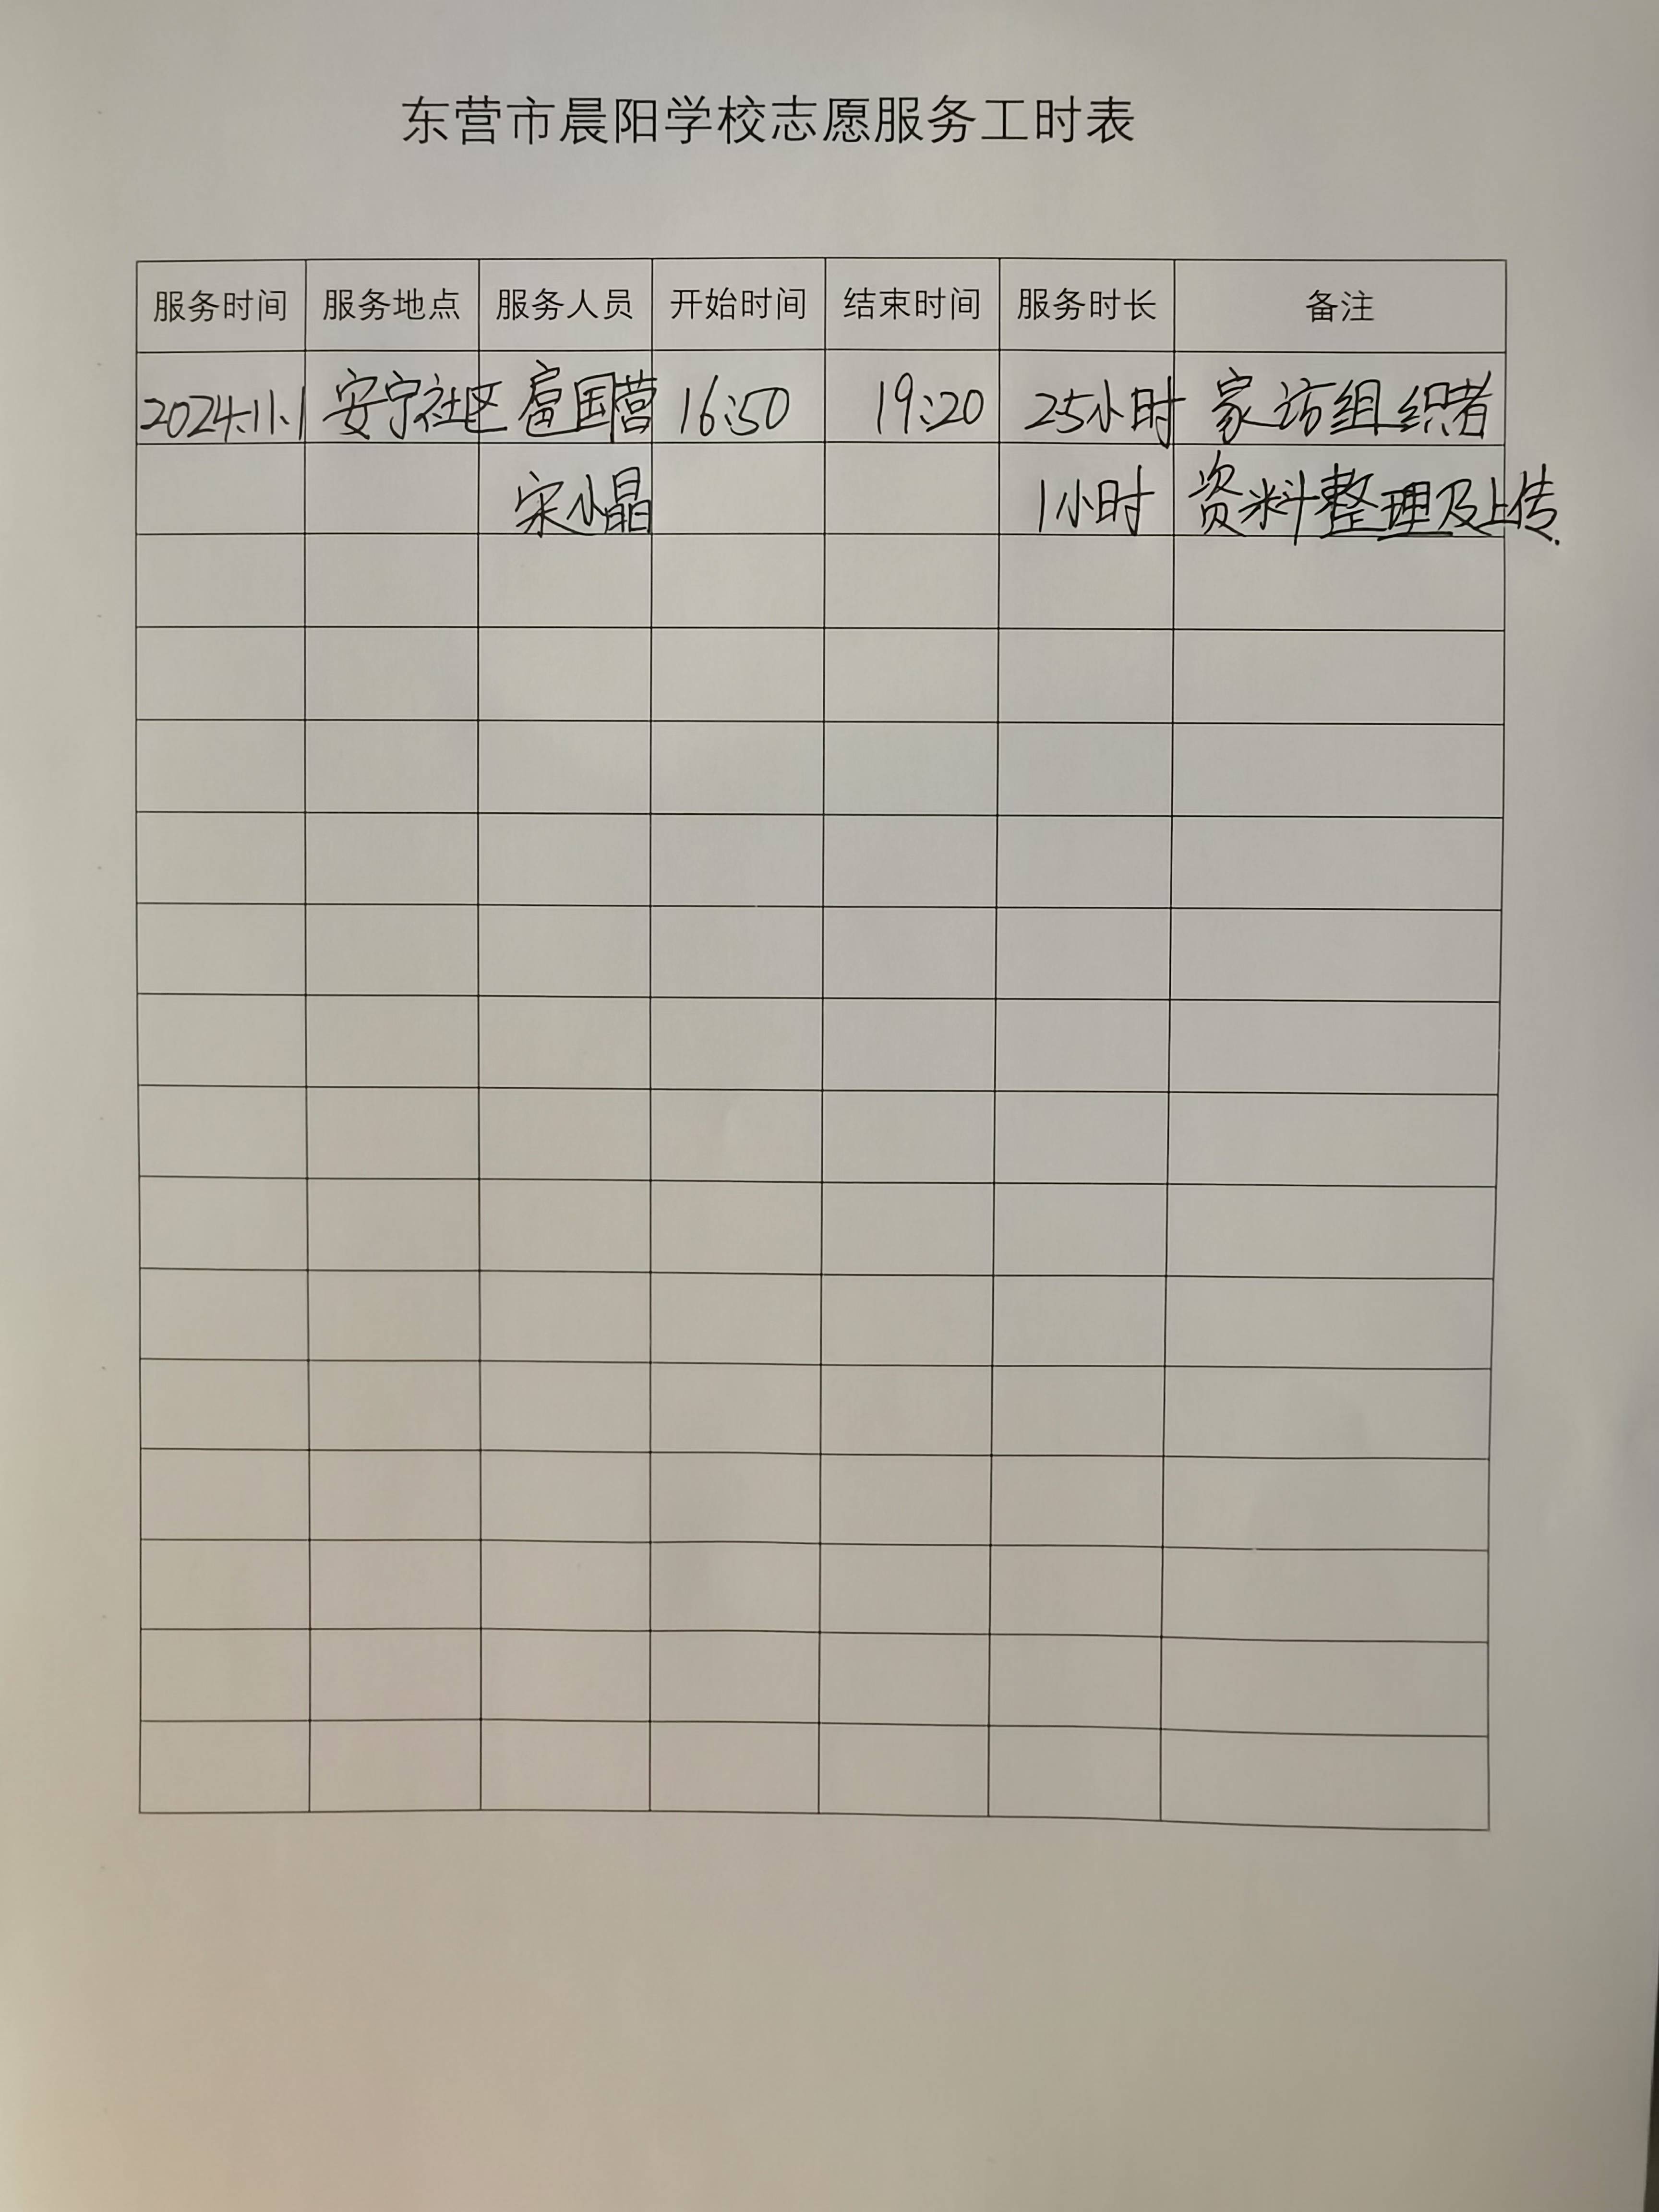 东营市晨阳学校志愿服务工时表
服务时间 服务地点 服务人员 开始时间 结束时间 服务时长 备注
2024.11.1 安宁社区 扈国营 16:50 19:20 25小时 家访组织者
宋小晶 1小时 资料整理及上传.